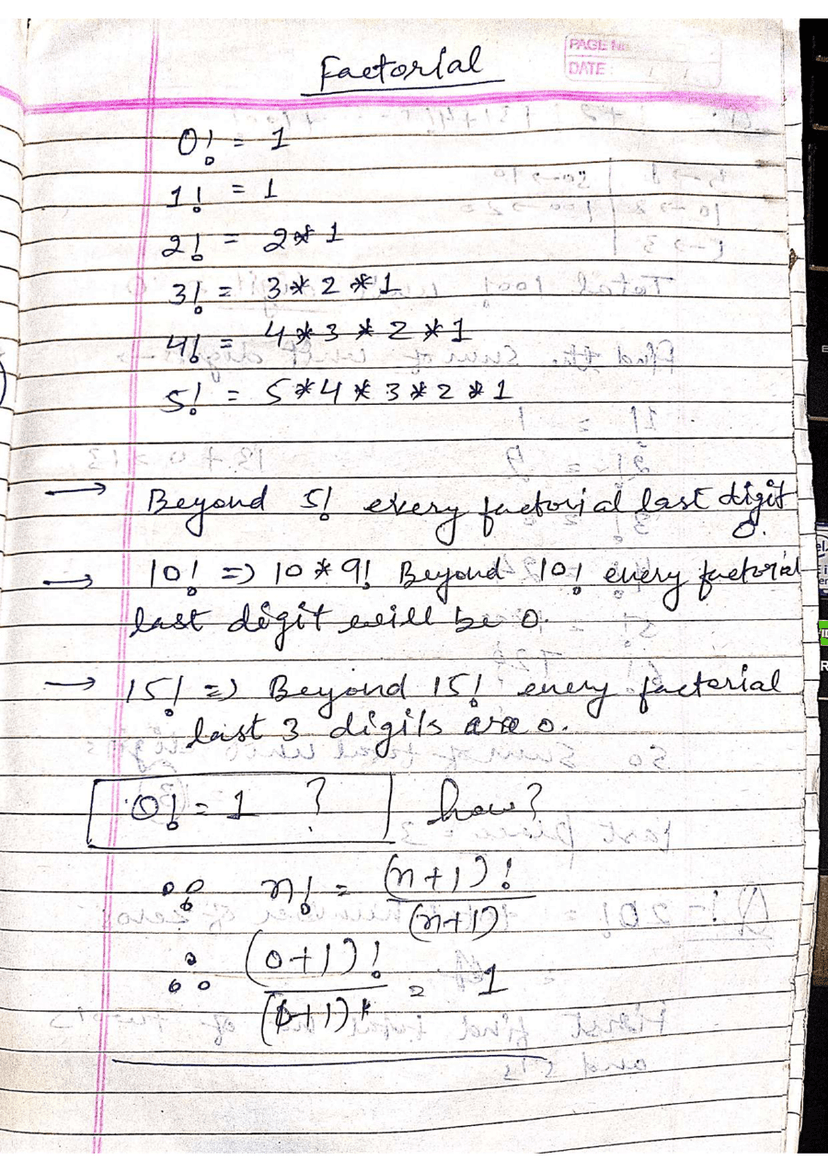 Factorial
PAGE No.
DATE :
0! = 1
1! = 1
2! = 2*1
3! = 3*2*1
4! = 4*3*2*1
5! = 5*4*3*2*1
→ Beyond 5! every factorial last digit
0.
→ 10! => 10*9! Beyond 10! every factorial
last digit will be 0.
→ 15! => Beyond 15! every factorial
last 3 digits are 0.
0! = 1 ? how?
∵ n! = (n+1)!
(n+1)
∴ (0+1)! = 1
(0+1)